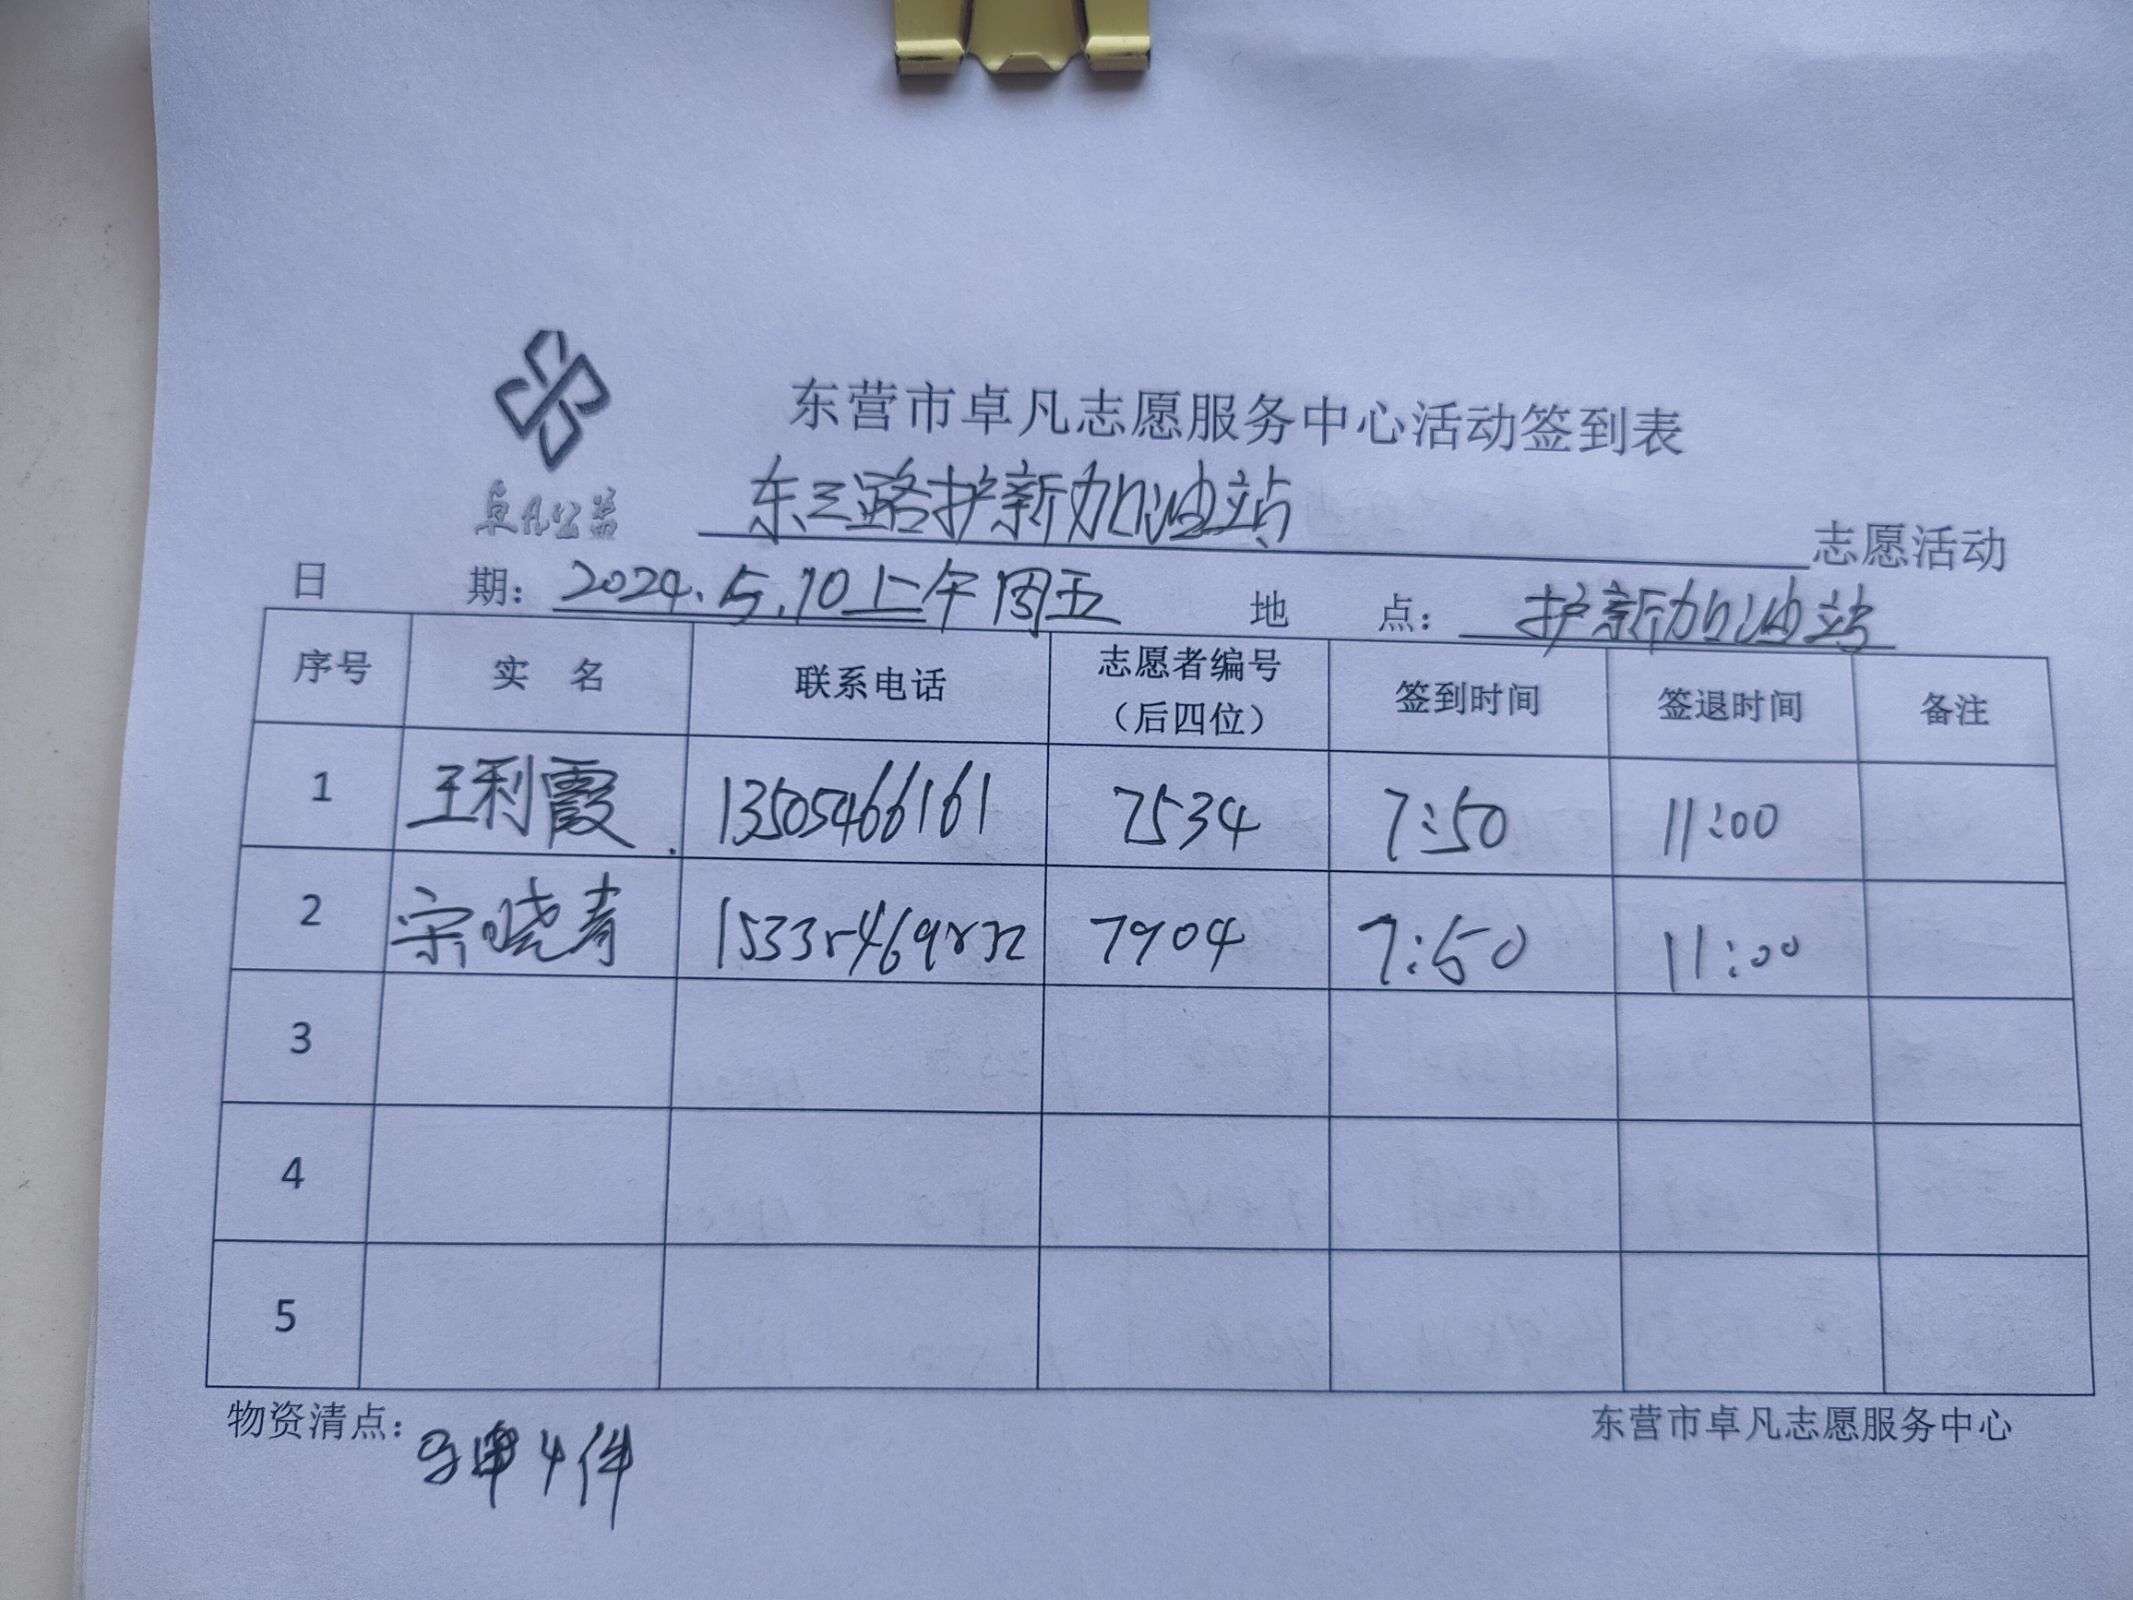 东营市卓凡志愿服务中心活动签到表
卓凡公益
东三路护新加油站 志愿活动
日 期：2024.5.10上午周五 地 点：护新加油站
序号 实 名 联系电话 志愿者编号（后四位） 签到时间 签退时间 备注
1 王利霞 13505466161 7534 7:50 11:00
2 宋晓青 7904 7:50 11:00
3
4
5
物资清点： 马甲4件
东营市卓凡志愿服务中心